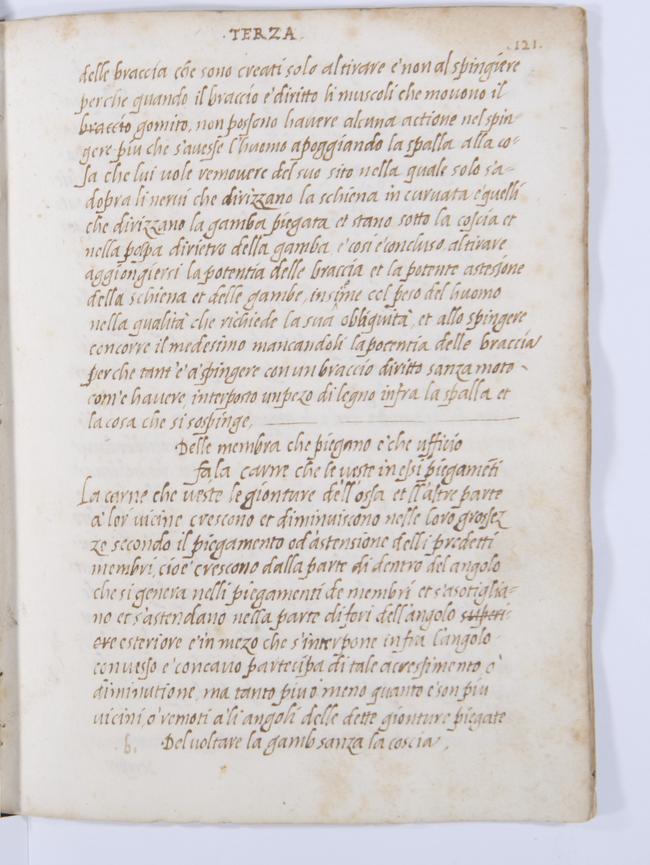 ·TERZA·
.121.
delle braccia che sono creati solo al tirare e non al spingiere
perche quando il braccio e diritto li muscoli che movono il
braccio gomito, non possono havere alcuna actione nel spin-
gere piu che s'avesse l'huomo apoggiando la spalla alla co-
sa che lui vole removere del suo sito nella quale solo s'a-
dopra li nervi che dirizzano la schiena in curvata e quelli
che dirizzano la gamba piegata et stano sotto la coscia et
nella polpa dirietro della gamba, e cosi e concluso al tirare
aggiongiersi la potentia delle braccia et la potente astesione
della schiena et delle gambe, insieme col peso del huomo
nella qualita che richiede la sua obliquita, et allo spingere
concorre il medesimo mancandoli la potentia delle braccia
perche tant'e a spingere con un braccio diritto sanza moto
com'e havere interposto un pezo di legno infra la spalla et
la cosa che si sospinge.
Delle membra che piegano e che ufficio
fa la carne che le veste in essi piegamēti
La carne che veste le gionture dell'ossa et ll'altre parte
a lor vicine crescono et diminuiscono nelle loro grossez
ze secondo il piegamento od astensione delli predetti
membri, cioe crescono dalla parte di dentro del angolo
che si genera nelli piegamenti de membri et s'asotiglia-
no et s'astendano nella parte di fori dell'angolo superi-
ore esteriore e in mezo che s'interpone infra l'angolo
convesso e concavo partecipa di tale acrescimento, o
diminutione, ma tanto piu o meno quanto e son piu
vicini, o remoti a li angoli delle dette gionture piegate
6. Del voltare la gamb sanza la coscia.